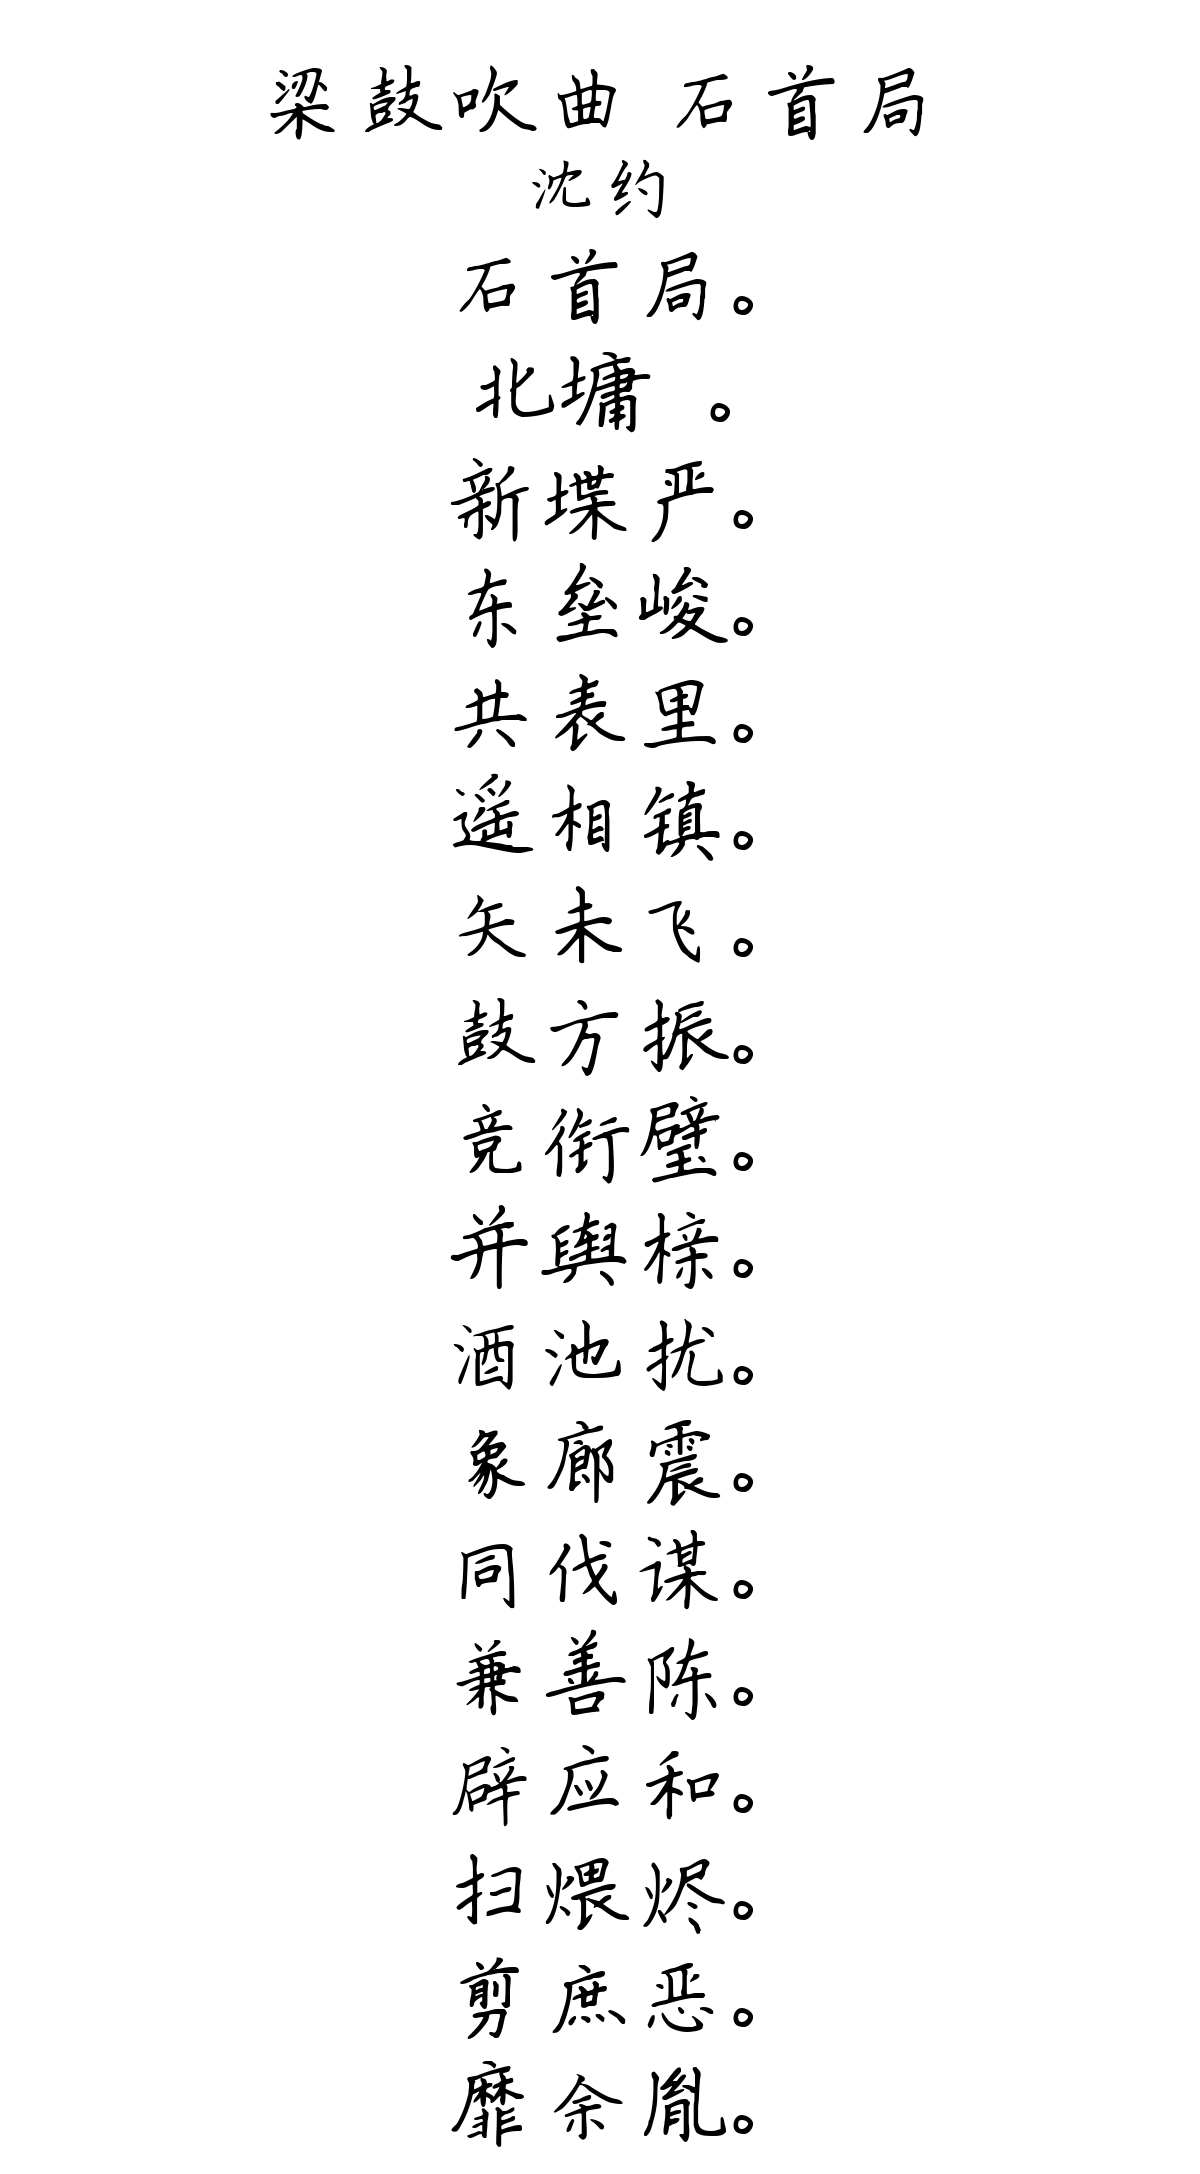 梁鼓吹曲 石首局
沈约
石首局。
北墉 。
新堞严。
东垒峻。
共表里。
遥相镇。
矢未飞。
鼓方振。
竞衔璧。
并舆榇。
酒池扰。
象廊震。
同伐谋。
兼善陈。
辟应和。
扫煨烬。
剪庶恶。
靡余胤。